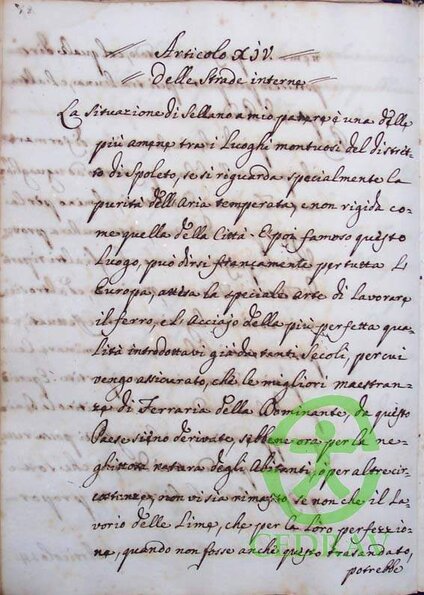 Articolo XIV.
Delle Strade interne
La situazione di Sellano a mio parere è una delle
più amene tra i Luoghi montuosi del distret-
to di Spoleto, se si riguarda specialmente la
purità dell'Aria temperata, e non rigida co-
me quella della Città. E poi famoso questo
Luogo, può dirsi francamente per tutta l'
Europa, attesa la speciale arte di lavorare
il ferro, e l'Acciajo della più perfetta qua-
lità introdottavi già da tanti Secoli, per cui
vengo assicurato, che le migliori maestran-
ze di Ferraria della Dominante, da questo
Paese siino derivate, sebbene ora per la ne-
ghittosa natura degli Abitanti, o per altre cir-
costanze, non vi sia rimasto se non che il la-
vorio delle Lime, che per la loro perfezzio-
ne, quando non fosse anche questo trasandato,
potrebbe
CEDRAV